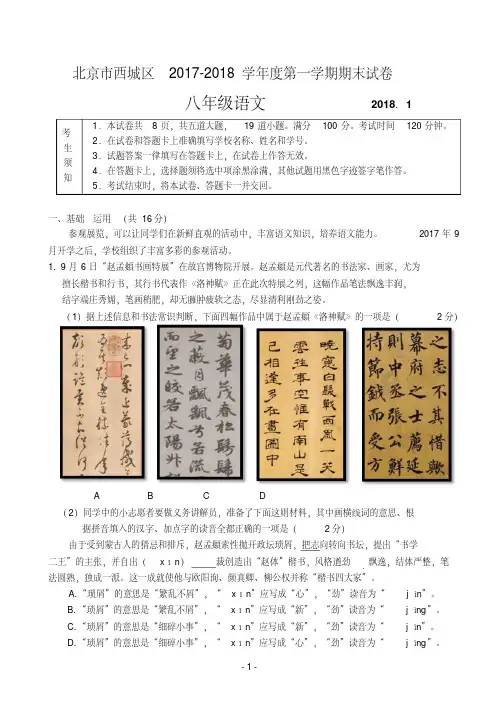 北京市西城区 2017-2018 学年度第一学期期末试卷
八年级语文 2018．1
考生须知
1．本试卷共 8 页，共五道大题， 19 道小题。满分 100 分。考试时间 120 分钟。
2．在试卷和答题卡上准确填写学校名称、姓名和学号。
3．试题答案一律填写在答题卡上，在试卷上作答无效。
4．在答题卡上，选择题须将选中项涂黑涂满，其他试题用黑色字迹签字笔作答。
5．考试结束时，将本试卷、答题卡一并交回。
一、基础 运用 （共 16分）
参观展览，可以让同学们在新鲜直观的活动中，丰富语文知识，培养语文能力。 2017 年 9
月开学之后，学校组织了丰富多彩的参观活动。
1. 9 月 6 日“赵孟頫书画特展”在故宫博物院开展。赵孟頫是元代著名的书法家、画家，尤为
擅长楷书和行书，其行书代表作《洛神赋》正在此次特展之列，这幅作品笔法飘逸丰润，
结字端庄秀媚，笔画稍肥，却无臃肿疲软之态，尽显清利刚劲之姿。
（1）据上述信息和书法常识判断，下面四幅作品中属于赵孟頫《洛神赋》的一项是（ 2 分）
菊华茂春松髣髴
之蔽月飘飖兮若流
而望之皎若太阳升
晓窗白发戏西风一笑
云往事空惟有南山是
己相逢多在画图中
之志不其惜欤
幕府之士荐延
则中丞张公鲜
持节钺而受方
A B C D
（2）同学中的小志愿者要做义务讲解员，准备了下面这则材料，其中画横线词的意思、根
据拼音填入的汉字、加点字的读音全都正确的一项是（ 2分）
由于受到蒙古人的猜忌和排斥，赵孟頫索性抛开政坛琐屑，把志向转向书坛，提出“书学
二王”的主张，并自出（ xīn）____裁创造出“赵体”楷书，风格遒劲 飘逸，结体严整，笔
法圆熟，独成一派。这一成就使他与欧阳询、颜真卿、柳公权并称“楷书四大家”。
A.“琐屑”的意思是“繁乱不屑”，“ xīn”应写成“心”，“劲”读音为“ jìn”。
B.“琐屑”的意思是“繁乱不屑”，“ xīn”应写成“新”，“劲”读音为“ jìng”。
C.“琐屑”的意思是“细碎小事”，“ xīn”应写成“新”，“劲”读音为“ jìn”。
D.“琐屑”的意思是“细碎小事”，“ xīn”应写成“心”，“劲”读音为“ jìng”。
- 1 -